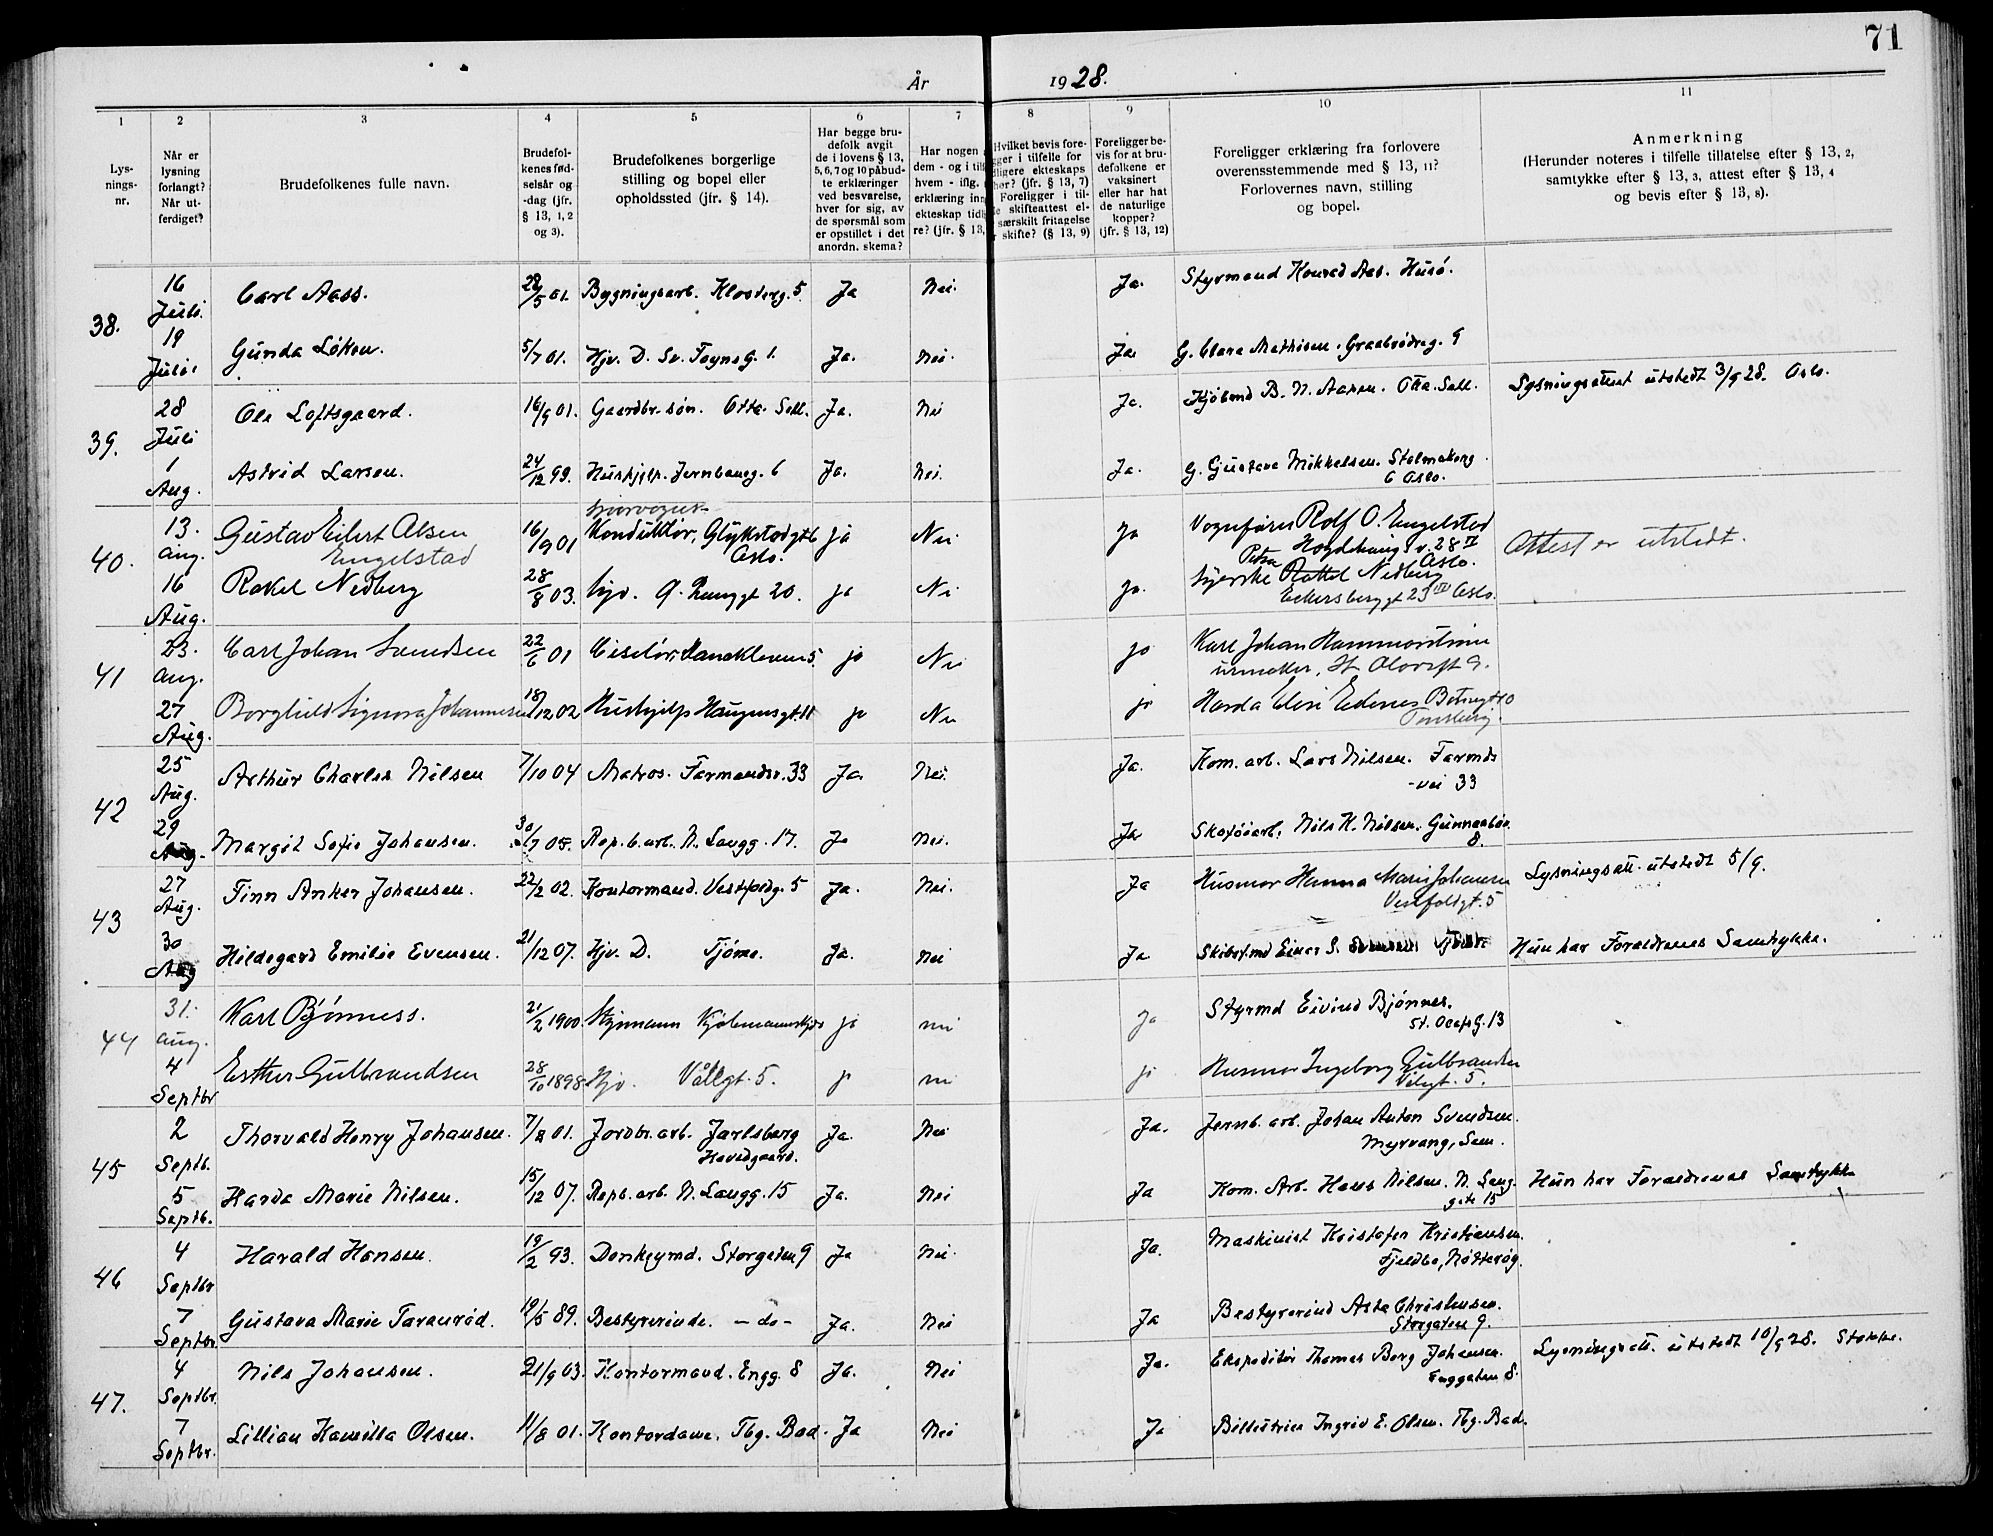 71
År 1928.
1 2 3 4 5 6 7 8 9 10 11
Lysnings-nr.
Når er lysning forlangt? Når utferdiget?
Brudefolkenes fulle navn.
Brudefolkenes fødselsår og -dag (jfr. § 13, 1, 2 og 3).
Brudefolkenes borgerlige stilling og bopel eller opholdssted (jfr. § 14).
Har begge brudefolk avgit de i lovens § 13, 5, 6, 7 og 10 påbudte erklæringer ved besvarelse, hver for sig, av de spørsmål som er opstillet i det anordn. skema?
Har nogen dem - og i til hvem - iflg. erklæring inn ekteskap tidl re? (jfr. § 13,
Hvilket bevis fore- gger i tilfelle for dligere ekteskaps hør? (jfr. § 13, 7) Foreligger i til- e skifteattest el- særskilt fritagelse r skifte? (§ 13, 9)
Foreligger bevis for at brudefolkene er vaksinert eller har hat de naturlige kopper? (jfr. § 13, 12)
Foreligger erklæring fra forlovere overensstemmende med § 13, 11? Forlovernes navn, stilling og bopel.
Anmerkning (Herunder noteres i tilfelle tillatelse efter § 13, 2, samtykke efter § 13, 3, attest efter § 13, 4 og bevis efter § 13, 8).
38. 16 Juli. Carl Aass. 28/5 01. Bygningsarb. Klosterg. 5. Ja Nei. Ja. Styrmand Konrad Aas. Husö.
19 Juli. Gunda Löken. 5/7 01. Hjv. D. Sv. Foyns G. 1. Ja. Nei. Ja. G. Clara Mathisen. Graabrödrg. 9
39. 28 Juli Ole Loftsgaard. 16/9 01. Gaardbr. søn. Otta. Sell. Ja. Nei Ja. Kjöbmd B. N. Aasen. Otta. Sell. Lysningsattest utstedt 3/9 28. Oslo.
1 Aug. Astrid Larsen. 24/12 99. Hushjelp. Jernbaneg. 6 Ja. Nei. Ja. G. Gustava Mikkelsen. Stolmakerg. 6 Oslo.
40. 13. aug. Gustav Eilert Olsen Engelstad 16/9 01 Sporvogns- Konduktör, Glykstadgt 6 Oslo. ja Nei ja Vognförer Rolf O. Engelstad Hegdehaugsv. 28 IV Oslo. Attest er utstedt.
16 Aug. Rakel Nedberg 28/8 03. hjv. Q. Ramggt 20. ja Nei ja. Syerske Petra Nedberg Eckersberggt 23 IV Oslo.
41 23. aug. Carl Johan Svendsen 22/6 01 Ciselör, Haneklevens 5. ja Nei ja Karl Johan Hammerström urmaker, St Olavsgt 9.
27 Aug. Borghild Signora Johannesen 18/12 02 Hushjelp Haugensgt. 11 ja Nei ja Harda Elvi Edenes Tønsberg.
42 25 Aug. Arthur Charles Nilsen 7/10 04 Matros. Farmandsv. 33 Ja. Nei. Ja. Kom. arb. Lars Nilsen. Farmds -vei 33
29 Aug. Margit Sofie Johansen. 30/7 05. Rep. b. arb. N. Langg. 17. Ja Nei. Ja Skotöiarb. Nils K. Nilsen. Gunnarsbö. 8.
43 27 Aug. Finn Anker Johansen. 22/2 02. Kontormand. Vestfoldg. 5 Ja. Nei. Ja Husmor Hanna Marie Johansen Vestfoldgt. 5 Lysningsatt. utstedt 5/9.
30 Aug Hildegard Emilie Evensen. 21/12 07. Hjv. D. Tjöme. Ja. Nei Ja Einar S. Hun har Foreldrenes Samtykke.
44 31. aug. Karl Bjønness. 21/2 1900. Styrmann ja nei ja Styrmd Eivind Bjønnes. St. Olafs G. 13
4 Septbr Esther Gulbrandsen 28/10 1898 Hjv. Vållgt. 5. ja nei ja Husmor Ingeborg Gulbrandsen Vålgt. 5.
45 2 Septb. Thorvald Henry Johansen. 7/8 01. Jordbr. arb. Jarlsberg Hovedgaard. Ja. Nei Ja. Jernb. arb. Johan Anton Svendsen. Myrvang, Sem.
5 Septb. Harda Marie Nilsen. 15/12 07. Repb. arb. N. Langg. 15 Ja. Nei Ja Kom. Arb. Hans Nilsen. N. Lang- gate 15 Hun har Foreldrenes Samtykke
46 4 Septbr Harald Hansen. 19/2 93. Donkeymd. Storgaten 9 Ja Nei. Ja. Maskinist Kristofer Kristiansen. Fjeldbo, Nötteröy.
7 Septbr. Gustava Marie Taraneröd. 19/5 89. Bestyrerinde. - do - Ja. Nei Ja Bestyrerind Asta Christensen. Storgaten 9.
47. 4 Septbr. Nils Johansen. 21/9 03. Kontormand. Engg. 8 Ja. Nei Ja. Ekspeditör Thomas Berg Johansen. Enggaten 8. Lysningsatt. utstedt 10/9 28. Stokke.
7 Septbr. Lillian Kamilla Olsen. 11/8 01. Kontordame. Tbg. Bad. Ja Nei Ja Billettrise Ingrid E. Olsen. Tbg. Bad.